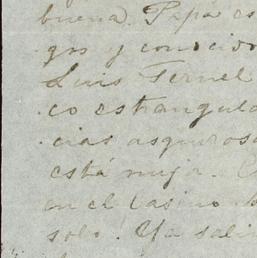 buena. Papá es
gos y conocion
Luis Fernel
co estrangula
cias asquerosa
está mejor.
en el Casino.
solo. Ya sali